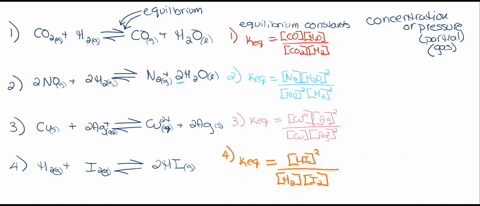 equilibrium
equilibrium constants
concentration
or pressure
(partial)
(gas)
1) CO₂(g) + H₂(g) ⇌ CO(g) + H₂O(l)
1) Keq = [CO][H₂O] / [CO₂][H₂]
2) 2NO(g) + 2H₂(g) ⇌ N₂(g) + 2H₂O(l)
2) Keq = [N₂][H₂O]² / [NO]²[H₂]²
3) Cu(s) + 2Ag⁺(aq) ⇌ Cu²⁺(aq) + 2Ag(s)
3) Keq = [Cu²⁺][Ag]² / [Cu][Ag⁺]²
4) H₂(g) + I₂(g) ⇌ 2HI(g)
4) Keq = [HI]² / [H₂][I₂]